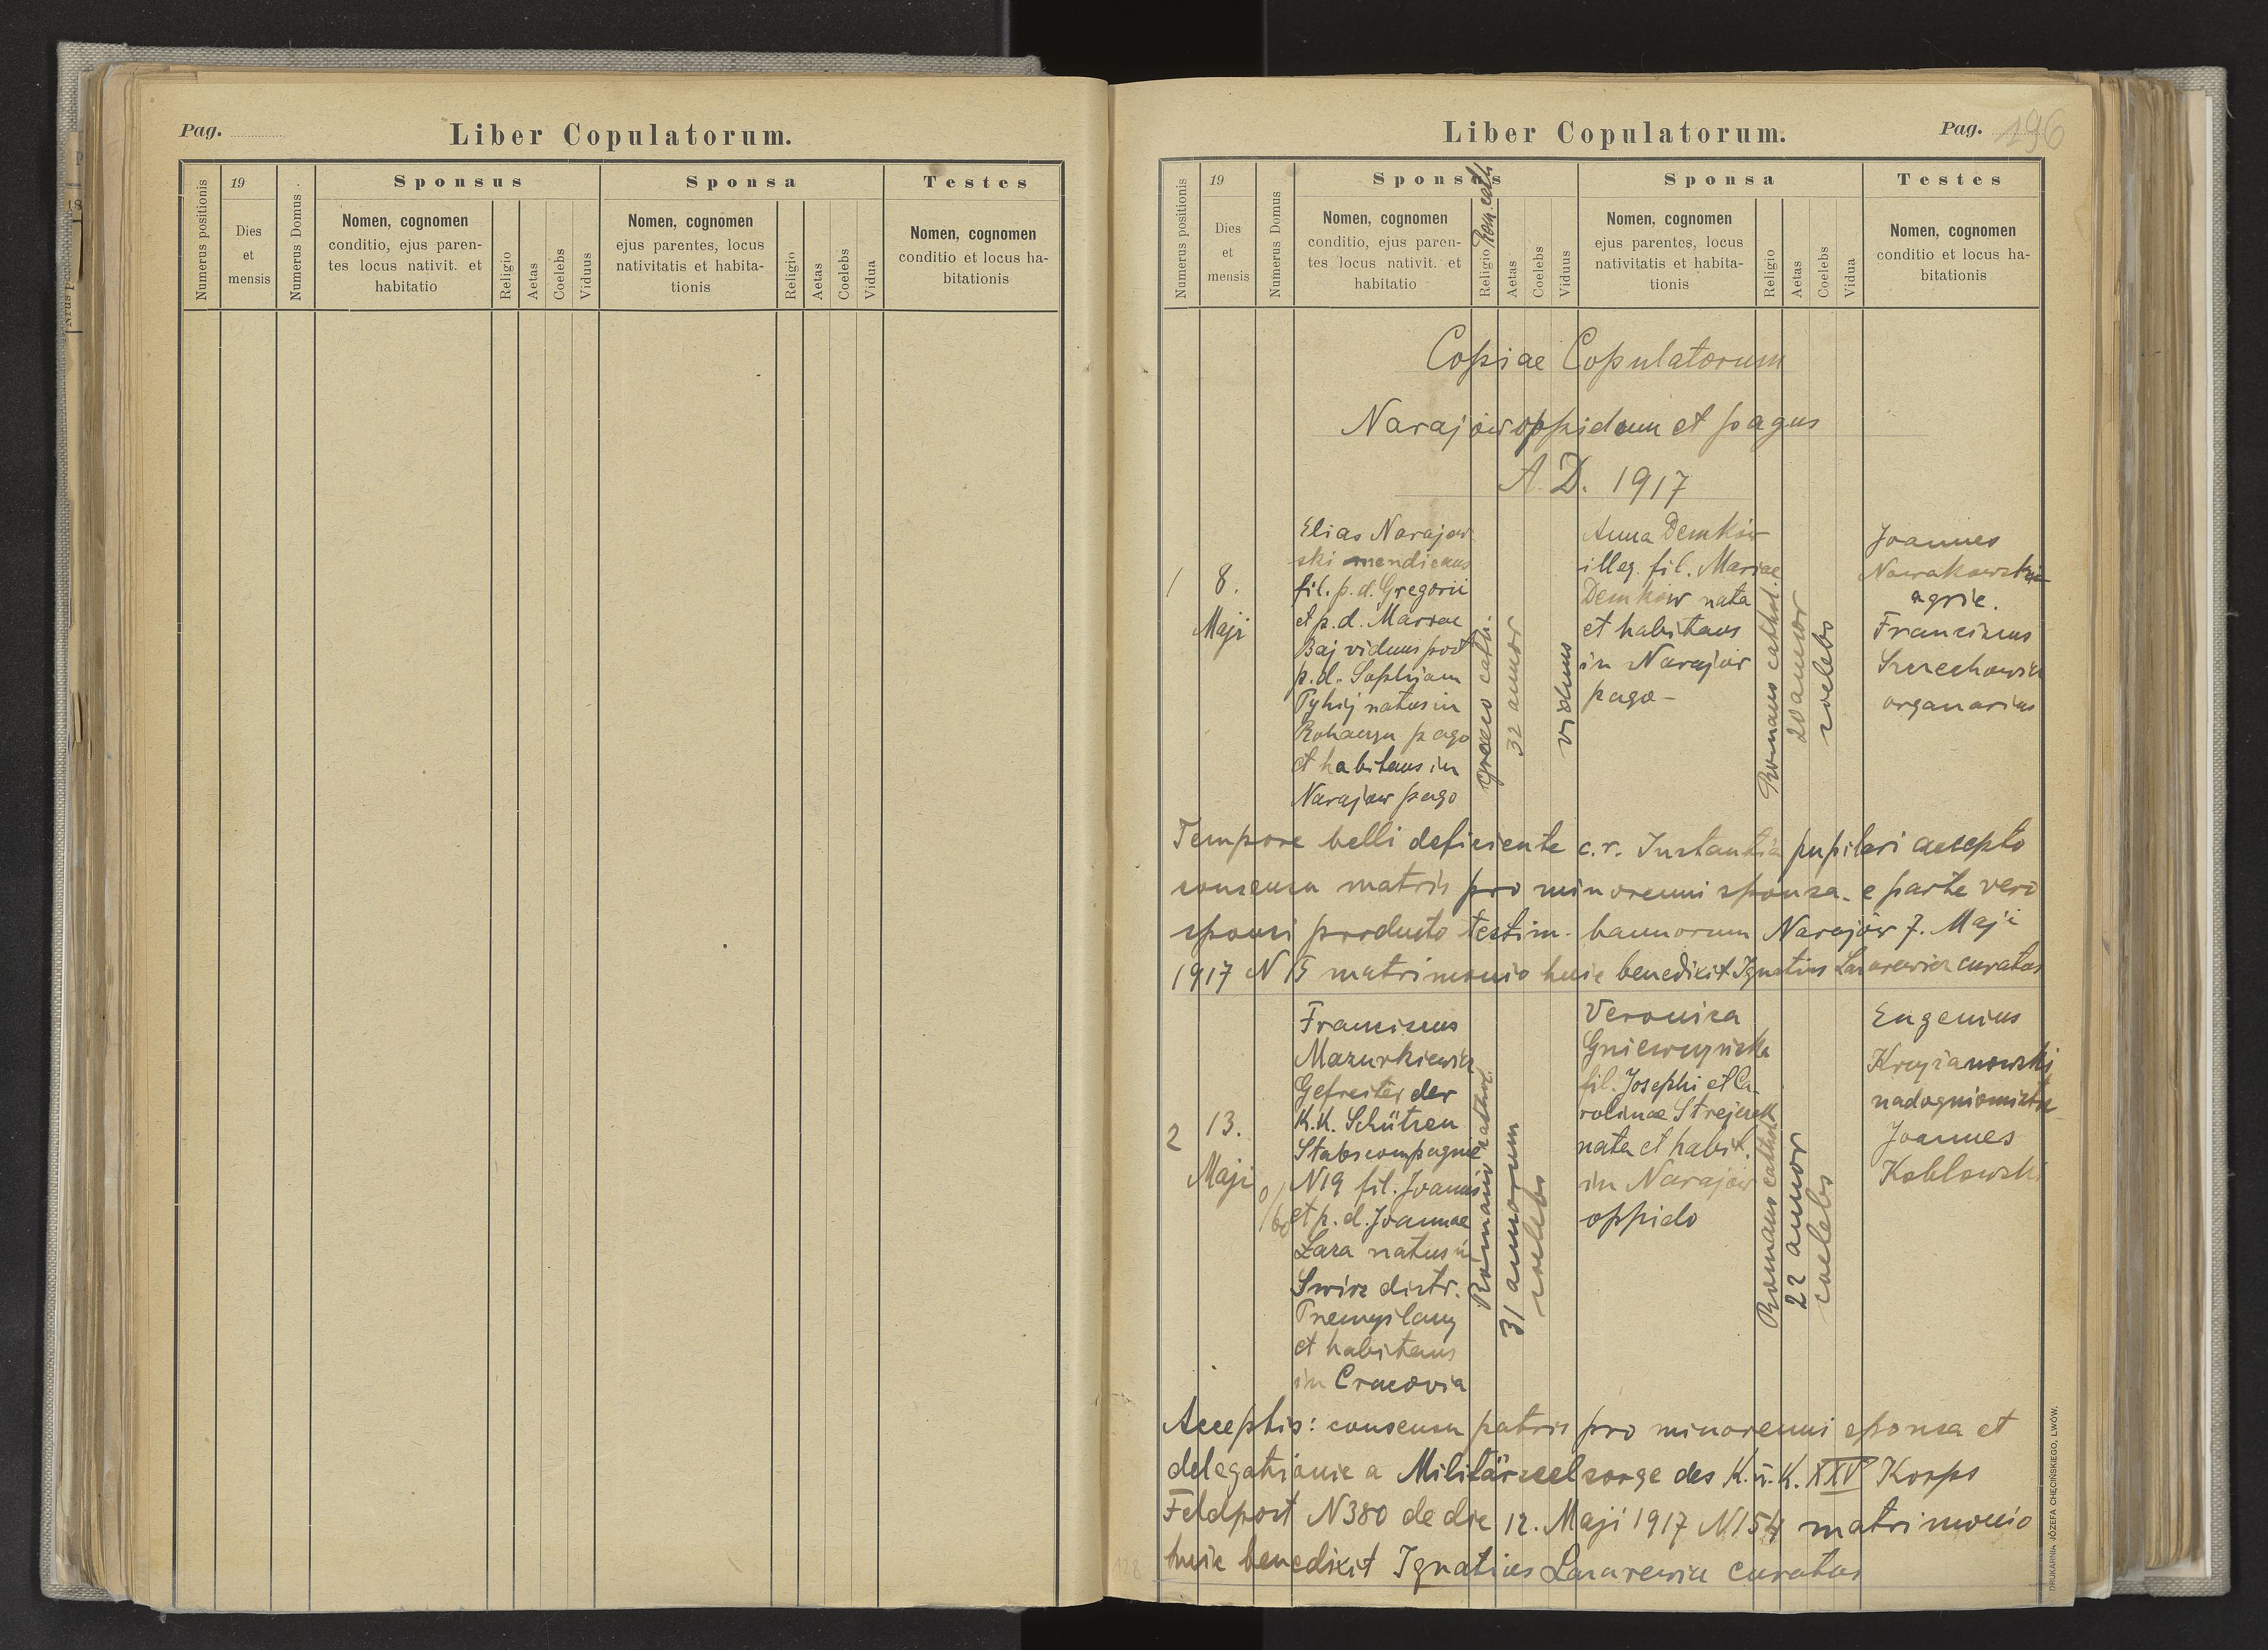 Pag.
Liber Copulatorum.
Numerus positionis
19
Dies
et
mensis
Numerus Domus
Sponsus
Nomen, cognomen
conditio, ejus paren-
tes locus nativit. et
habitatio
Religio
Aetas
Coelebs
Viduus
Sponsa
Nomen, cognomen
ejus parentes, locus
nativitatis et habita-
tionis
Religio
Aetas
Coelebs
Vidua
Testes
Nomen, cognomen
conditio et locus ha-
bitationis
Liber Copulatorum.
Pag. 196
Numerus positionis
19
Dies
et
mensis
Numerus Domus
Sponsus
Nomen, cognomen
conditio, ejus paren-
tes locus nativit. et
habitatio
Religio Rom. cath
Aetas
Coelebs
Viduus
Sponsa
Nomen, cognomen
ejus parentes, locus
nativitatis et habita-
tionis
Religio
Aetas
Coelebs
Vidua
Testes
Nomen, cognomen
conditio et locus ha-
bitationis
Copiae Copulatorum
Narajów oppidum et pagus
A. D. 1917
1
8.
Maji
Elias Narajow
ski mendicans
fil. p. d. Gregorii
et p. d. Mariae
Baj viduus post
p. d. Sophiam
natus in
Rohaczyn pago
et habitans in
Narajow pago
graeco cath.
32 annor
viduus
Anna Demków
illeg. fil. Mariae
Demków nata
et habitans
in Narajów
pago -
Romano cathol.
20 annor
coelebs
Joannes
Nowakowski
agric.
Franciscus
organarius
Tempore belli deficiente c. r. Instantia pupilari accepto
consensu matris pro minorenni sponsa - e parte vero
sponsi producto testim. bannorum Narajów 7. Maji
1917 N 15 matrimonio huic benedixit Ignatius Lazarewicz curatus
2
13.
Maji
Franciscus
Mazurkiewicz
Gefreiter der
K. K. Schützen
Stabscompagnie
N 19 fil. Joannis
et p. d. Joannae
Łaza natus in
Swirz distr.
Przemyslany
et habitans
in Cracovia
Romano cathol.
31 annorum
coelebs
Veronica
Gniewczyńska
fil. Josephi et Ca-
rolinae
nata et habit.
in Narajów
oppido
Romano cathol
22 annor
coelebs
Eugenius
Krzyżanowski
nadogniomistrz
Joannes
Kozlowski
Acceptis: consensu patris pro minorenni sponsa et
delegationie a Militärseelsorge des K. u. K. XXV Korps
Feldpost N 380 de die 12. Maji 1917 N 154 matrimonio
huic benedixit Ignatius Lazarewicz curatus
DRUKARNIA JÓZEFA CHĘCIŃSKIEGO, LWÓW.